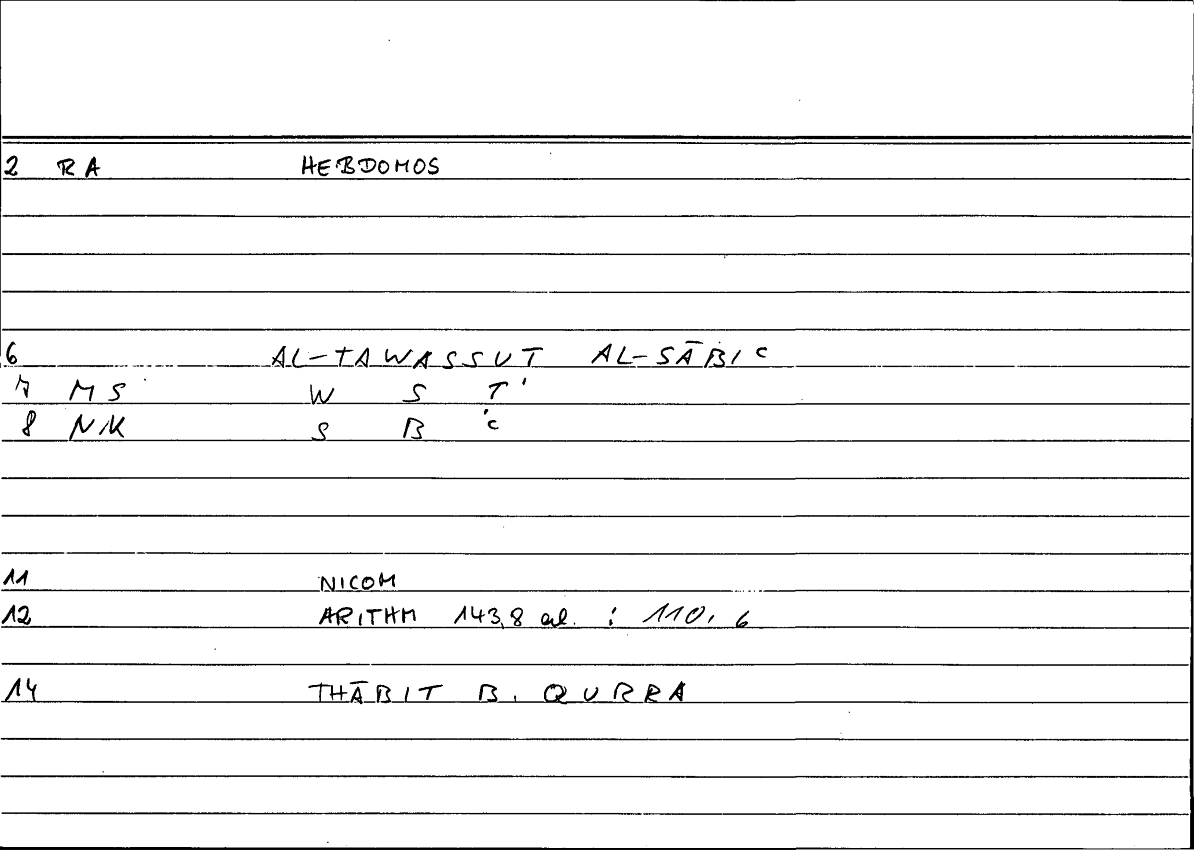 2 RA HEBDOMOS
6 AL-TAWASSUT AL-SĀBIC
7 MS W S T
8 NK S B C
11 NICOM
12 ARITHM 143,8 al. : 110, 6
14 THĀBIT B. QURRA